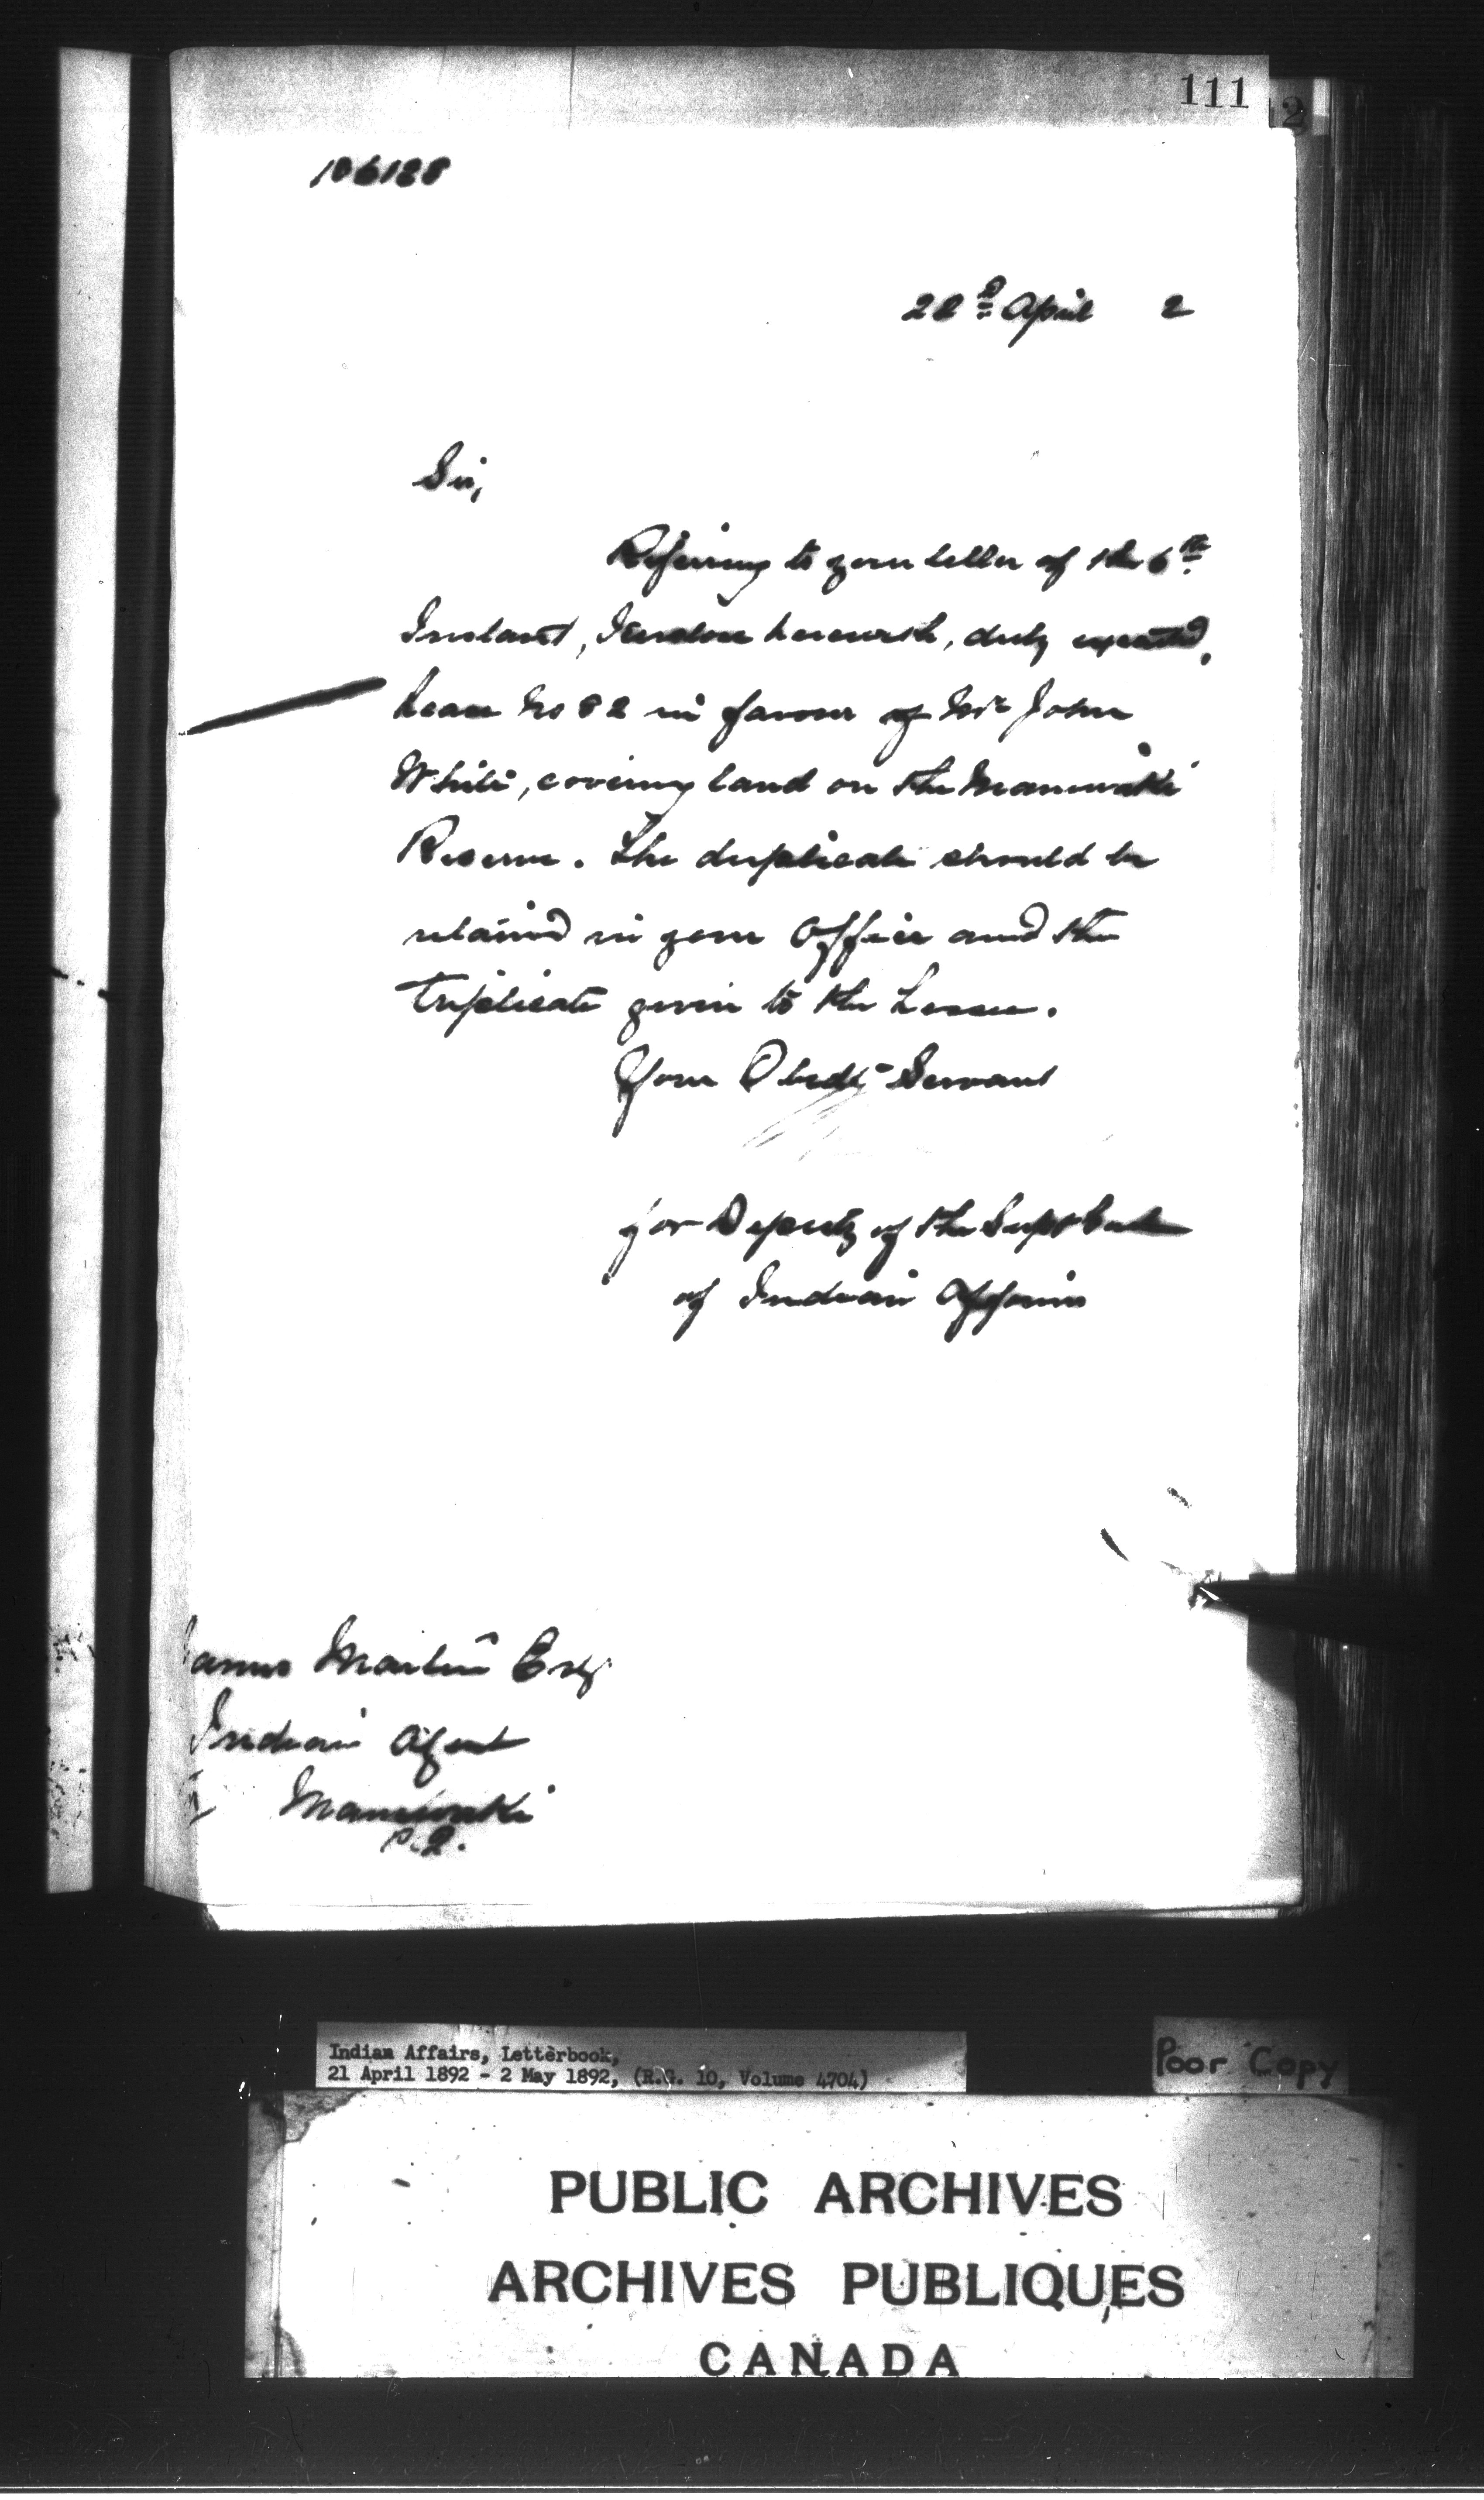 111
2
106188
22d April 2
Sir,
Referring to your letter of the 6th
Instant, I enclose herewith, duly executed,
Lease No 82 in favour of Mr John
White, covering land on the Maniwaki
Reserve. The duplicate should be
retained in your Office and the
triplicate given to the Lessee.
Your Obedt Servant
for Deputy of the Supt Genl
of Indian Affairs
James Martin Esq
Indian Agent
Maniwaki
P.Q.
Indian Affairs, Letterbook,
21 April 1892 - 2 May 1892, (R.G. 10, Volume 4704)
Poor Copy
PUBLIC ARCHIVES
ARCHIVES PUBLIQUES
CANADA